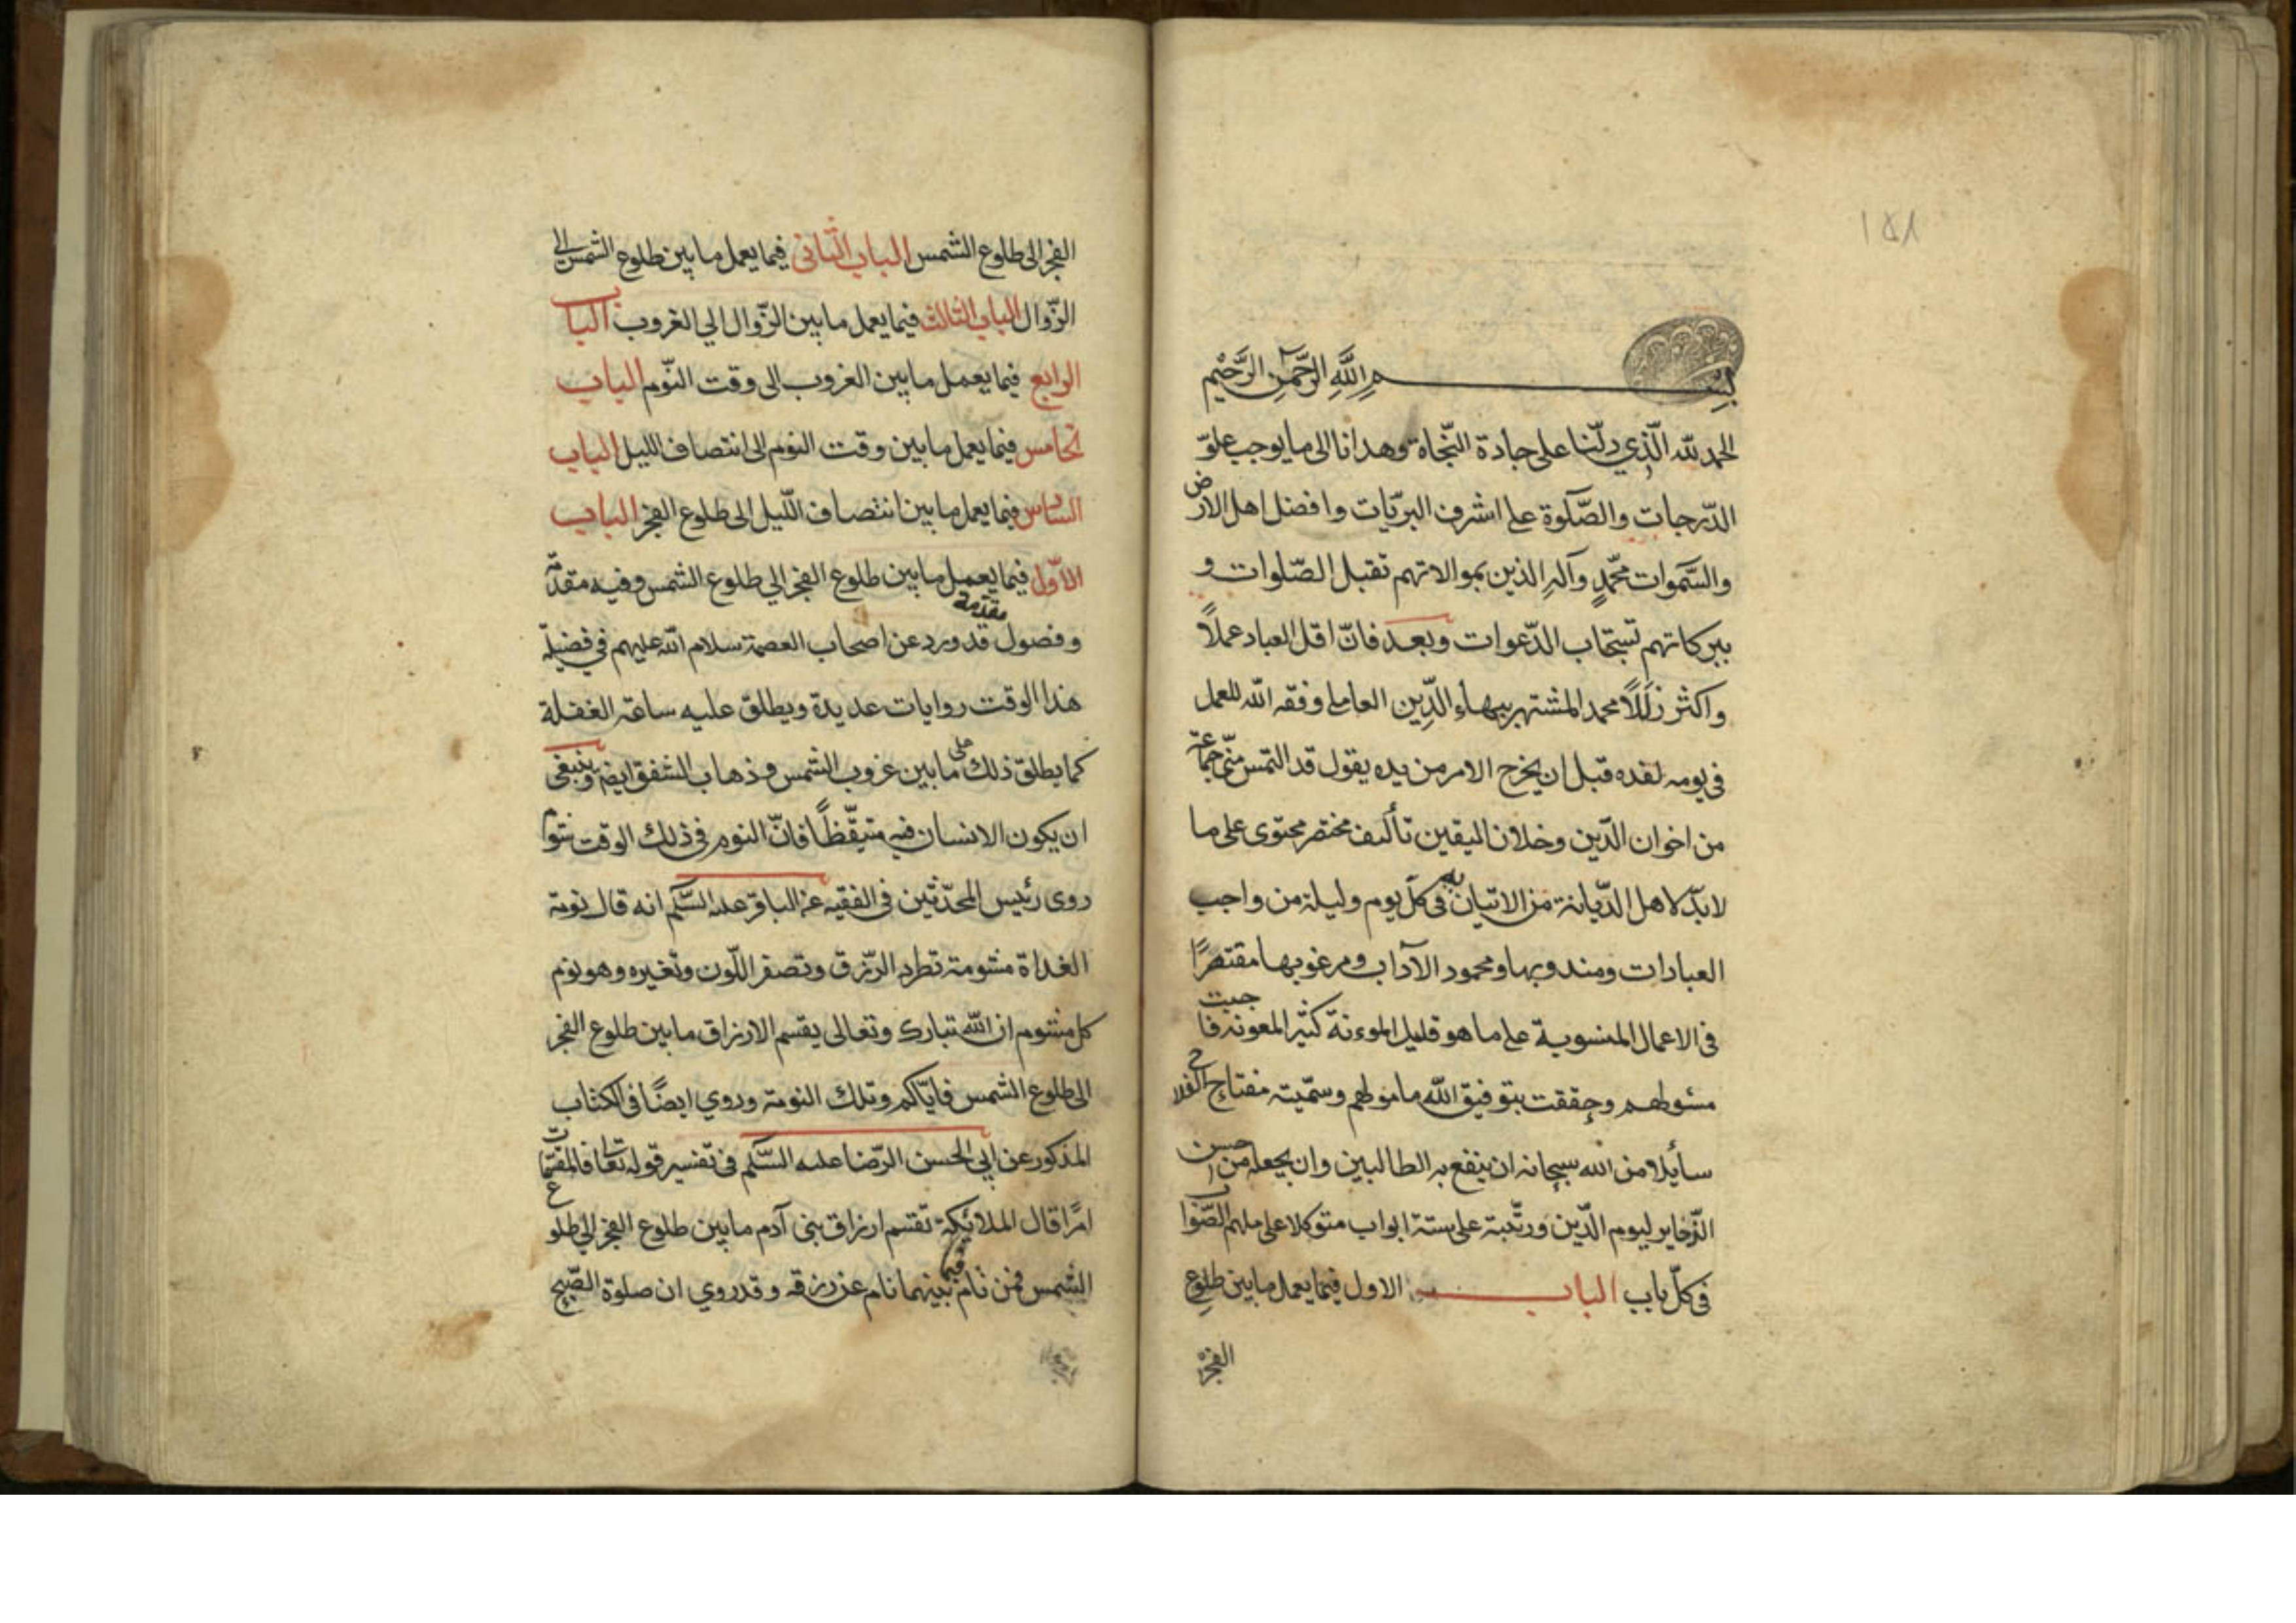 ١٥١
بسم الله الرحمن الرحيم
الحمد لله الّذي دلّنا على جادة النّجاة وهدانا الى ما يوجب علوّ
الدّرجات والصّلوة على اشرف البريّات وافضل اهل الارض
والسّموات محمّدٍ وآلهِ الذين بموالاتهم تقبل الصّلوات و
ببركاتهم تستجاب الدّعوات وبعد فانّ اقل العباد عملاً
واكثر زللاً محمد المشتهر ببهاء الدّين العاملي وفقه الله للعمل
في يومه لغده قبل ان يخرج الامر من يده يقول قد التمس منّي جماعة
من اخوان الدّين وخلان اليقين تأليف مختصر محتوى على ما
لابدّ لاهل الدّيانة من الاتيان به فى كلّ يوم وليلة من واجب
العبادات ومندوبها ومحمود الآداب ومرغوبها مقتصرًا
فى الاعمال المنسوبة على ما هو قليل الموءنة كثير المعونة فاجبت
مسٔولهم وحققت بتوفيق الله مامولهم وسمّيته مفتاح الفلاح
سائلا من الله سبحانه ان ينفع به الطالبين وان يجعله من احسن
الذّخاير ليوم الدّين ورتّبته على ستة ابواب متوكلا على ملهم الصّواب
فى كلّ باب الباب الاول فيما يعمل ما بين طلوع
الفجر
الفجر الى طلوع الشمس الباب الثانى فيما يعمل ما بين طلوع الشمس الى
الزّوال الباب الثالث فيما يعمل ما بين الزّوال الي الغروب الباب
الرابع فيما يعمل ما بين الغروب الى وقت النّوم الباب
الخامس فيما يعمل ما بين وقت النوم الى انتصاف الليل الباب
السادس فيما يعمل ما بين انتصاف اللّيل الى طلوع الفجر الباب
الاوّل فيما يعمل ما بين طلوع الفجر الي طلوع الشمس وفيه مقدّمة
مقدمة
وفصول قد ورد عن اصحاب العصمة سلام الله عليهم في فضيلة
هذا الوقت روايات عديدة ويطلق عليه ساعة الغفلة
كما يطلق ذلك على ما بين غروب الشمس وذهاب الشفق ايضا وينبغى
ان يكون الانسان فيه متيقّظاً فانّ النوم فى ذلك الوقت شؤم
روى رئيس المحدّثين فى الفقيه عن الباقر عليه السّلم انه قال نومة
الغداة مشومة تطرد الرّزق وتصفر اللّون وتغيره وهو نوم
كل مشوم ان الله تبارك وتعالى يقسم الارزاق ما بين طلوع الفجر
الى طلوع الشمس فايّاكم وتلك النومة وروي ايضًا فى الكتاب
المذكور عن ابي الحسن الرّضا عليه السّلم فى تفسير قوله تعالى فالمقسّمات
امرًا قال الملائكة تقسم ارزاق بنى آدم ما بين طلوع الفجر الي طلوع
الشمس فمن نام فيما بينهما نام عن رزقه وقد روي ان صلوة الصّبح